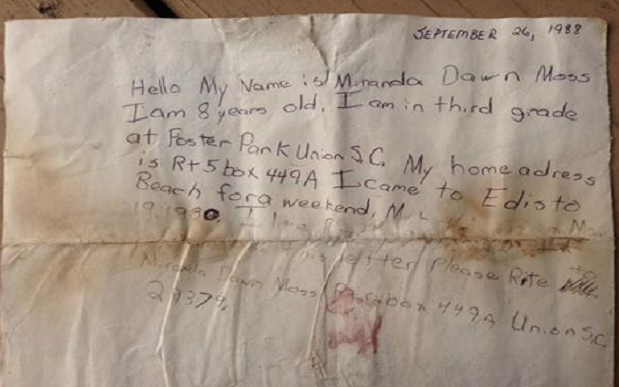 SEPTEMBER 26, 1988
Hello My Name is Miranda Dawn Moss
I am 8 years old. I am in third grade
at Foster Park Union S.C. My home adress
is Rt 5 box 449A I came to Edisto
Beach for a weekend,
19, I
letter Please Rite to
Miranda Dawn Moss box 449A Union S.C.
29379.